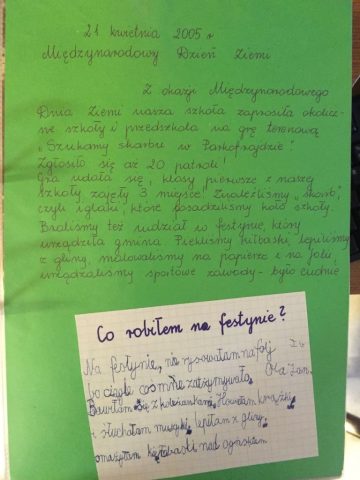 21 kwietnia 2005 r
Międzynarodowy Dzień Ziemi
Z okazji Międzynarodowego
Dnia Ziemi nasza szkoła zaprosiła okolicz-
ne szkoły i przedszkola na grę terenową
„Szukamy skarbu w Parkofrajdzie".
Zgłosiło się aż 20 patroli!
Gra udała się, klasy pierwsze z naszej
szkoły zajęły 3 miejsce! Znaleźliśmy „skarb",
czyli iglaki, które posadziliśmy koło szkoły.
Braliśmy też udział w festynie, który
urządziła gmina. Piekliśmy kiełbaski, lepiliśmy
z gliny, malowaliśmy na papierze i na folii,
urządzaliśmy sportowe zawody - było cudnie
Co robiłem na festynie?
Na festynie, nie rysowałam na folj
bo ciągle coś mnie zatrzymywało. Ola
Bawiłam się z koleżankami,
i słuchałam muzyki, lepiłam z gliny,
smażyłam kiełbaski nad ogniskiem